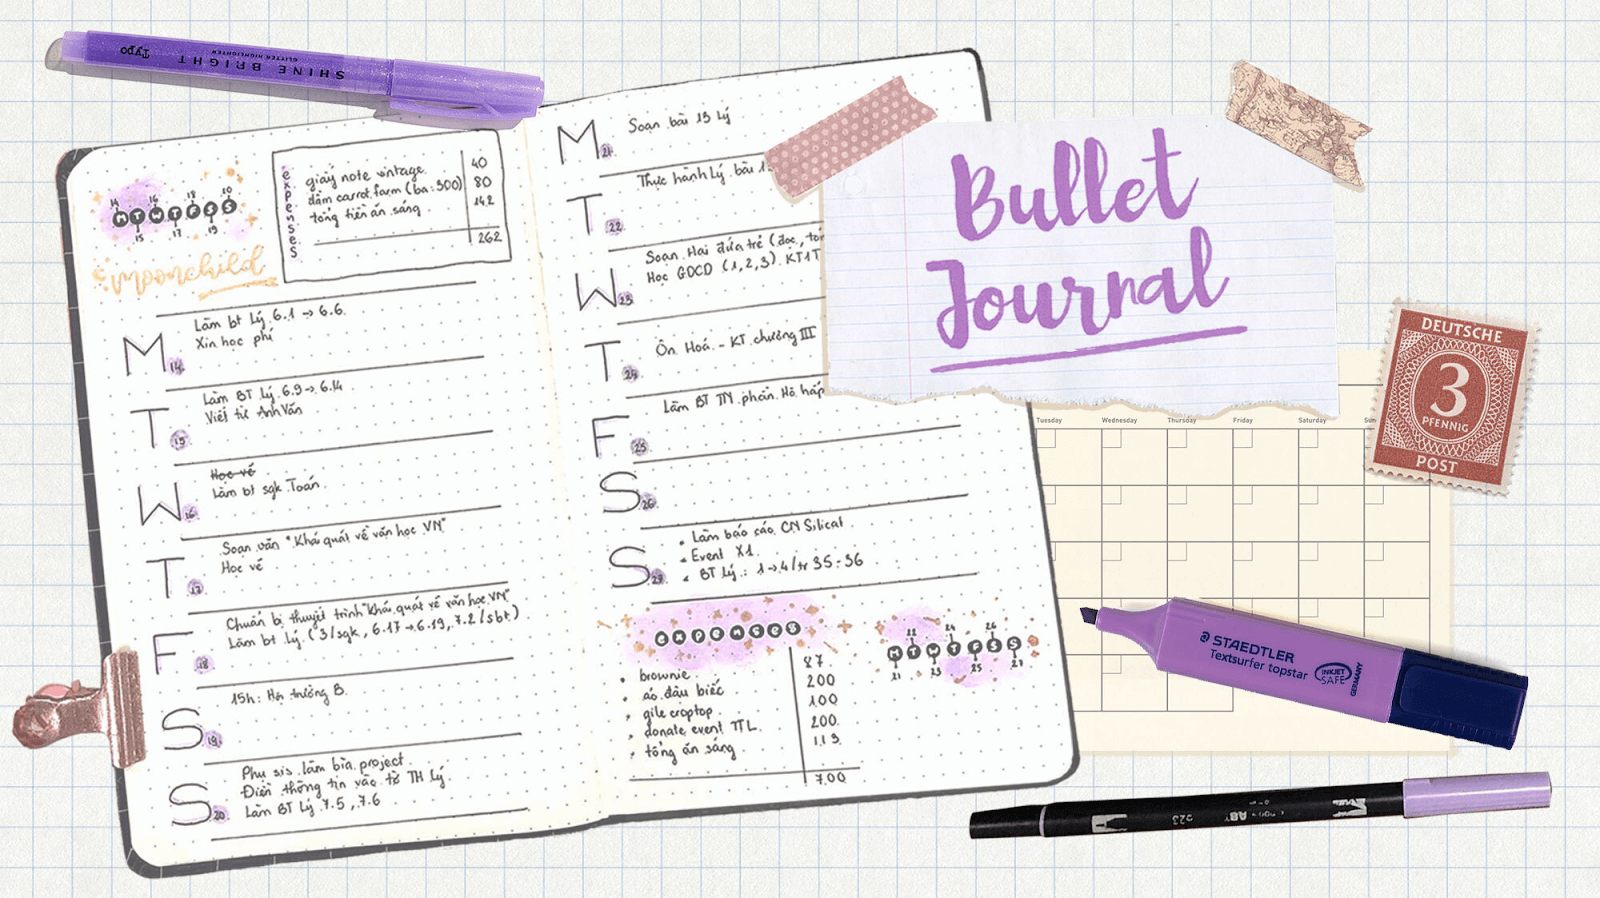 SHINE BRIGHT
GLITTER HIGHLIGHTER
Typo
14 16 18 20
M T W T F S S
15 17 19
moonchild
expenses
giấy note vintage 40
dầm carrot farm (ba: 500) 80
tổng tiền ăn sáng 142
262
M 14
Làm bt Lý 6.1 → 6.6
Xin học phí
T 15
Làm BT Lý 6.9 → 6.14
Viết từ Anh Văn
W 16
Học vẽ
Làm bt sgk Toán
T 17
Soạn văn "Khái quát về văn học VN"
Học vẽ
F 18
Chuẩn bị thuyết trình "Khái quát về văn học VN"
Làm bt Lý (3/sgk, 6.17 → 6.19, 7.2/sbt)
S 19
15h: Hội trường B.
S 20
Phụ sis làm bìa project
Điền thông tin vào tờ TH Lý
Làm BT Lý 7.5, 7.6
M 21
Soạn bài 13 Lý
T 22
Thực hành Lý bài
W 23
Soạn Hai đứa trẻ (đọc,
Học GDCD (1,2,3). KT1T
T 24
Ôn Hoá - KT chương III
F 25
Làm BT TN phần Hô hấp
S 26
S
• Làm báo cáo CN Silicat
• Event X1
• BT Lý: 1 → 4/tr 35-36
expenses
• brownie 87
• áo đậu biếc 200
• gile croptop 100
• donate event TTL 200
• tổng ăn sáng 113
700
22 24 26
M T W T F S S
21 23 25 27
Bullet
Journal
Tuesday Wednesday Thursday Friday Saturday
DEUTSCHE
3
PFENNIG
POST
STAEDTLER
Textsurfer topstar
INKJET
SAFE
GERMANY